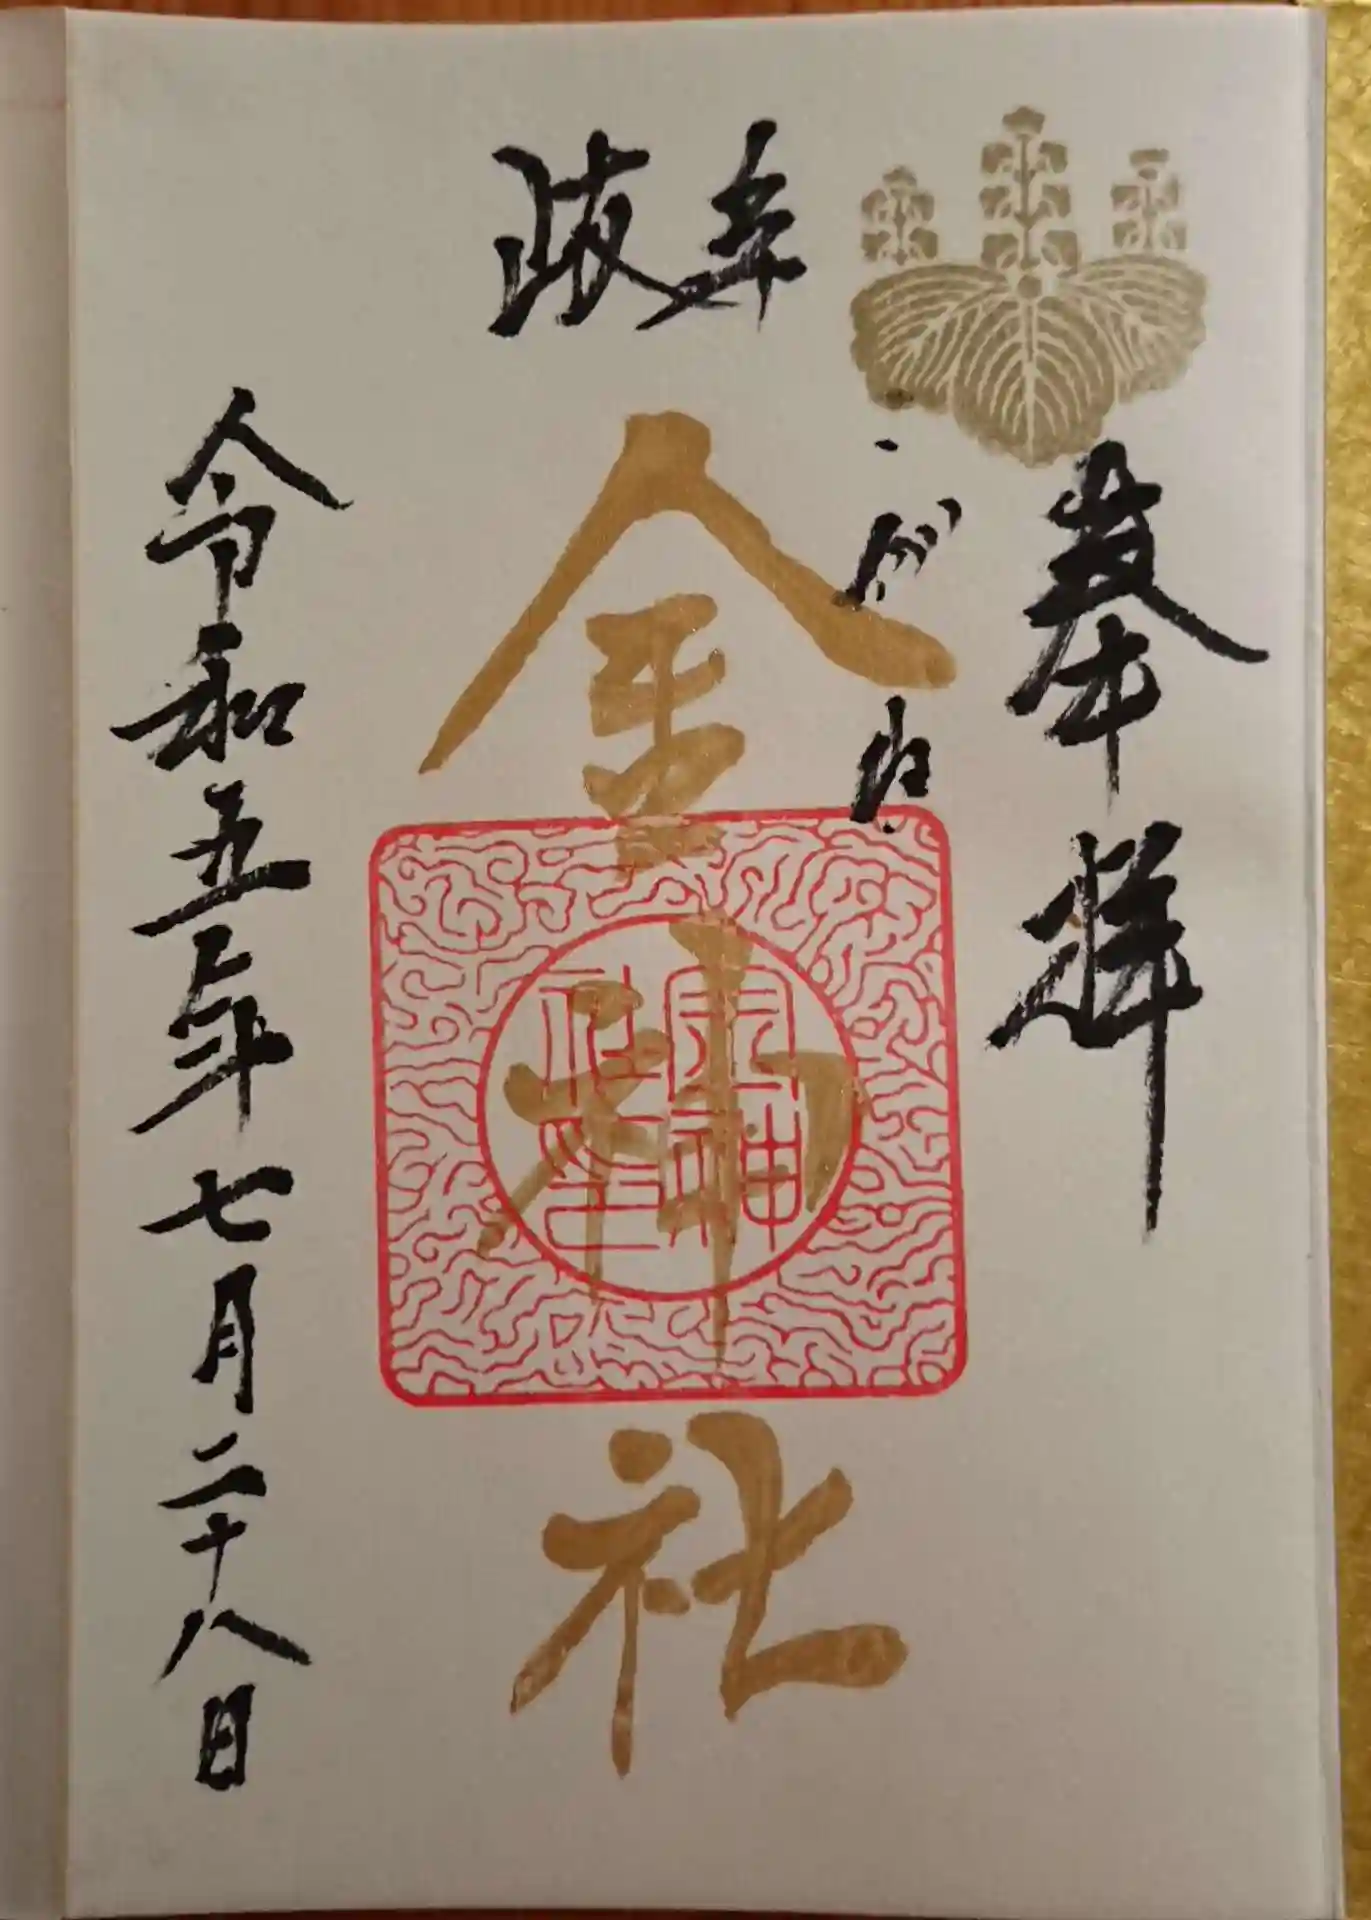 奉拝
岐阜
こがね
金神社
金神社印
令和五年七月二十八日